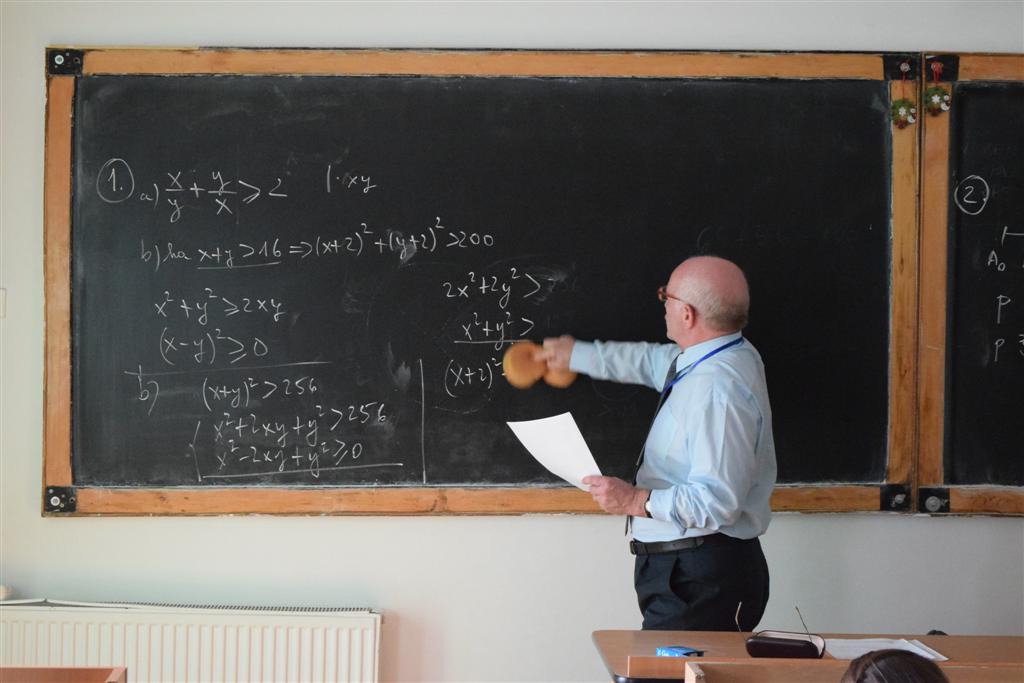 1. a) x/y + y/x ⩾ 2 |· xy
b) ha x+y > 16 ⇒ (x+2)² + (y+2)² > 200
x² + y² ⩾ 2xy
(x-y)² ⩾ 0
b) (x+y)² > 256
x² + 2xy + y² > 256
x² - 2xy + y² ⩾ 0
2x² + 2y² >
x² + y² >
(x+2)²
2
A₀
P
P